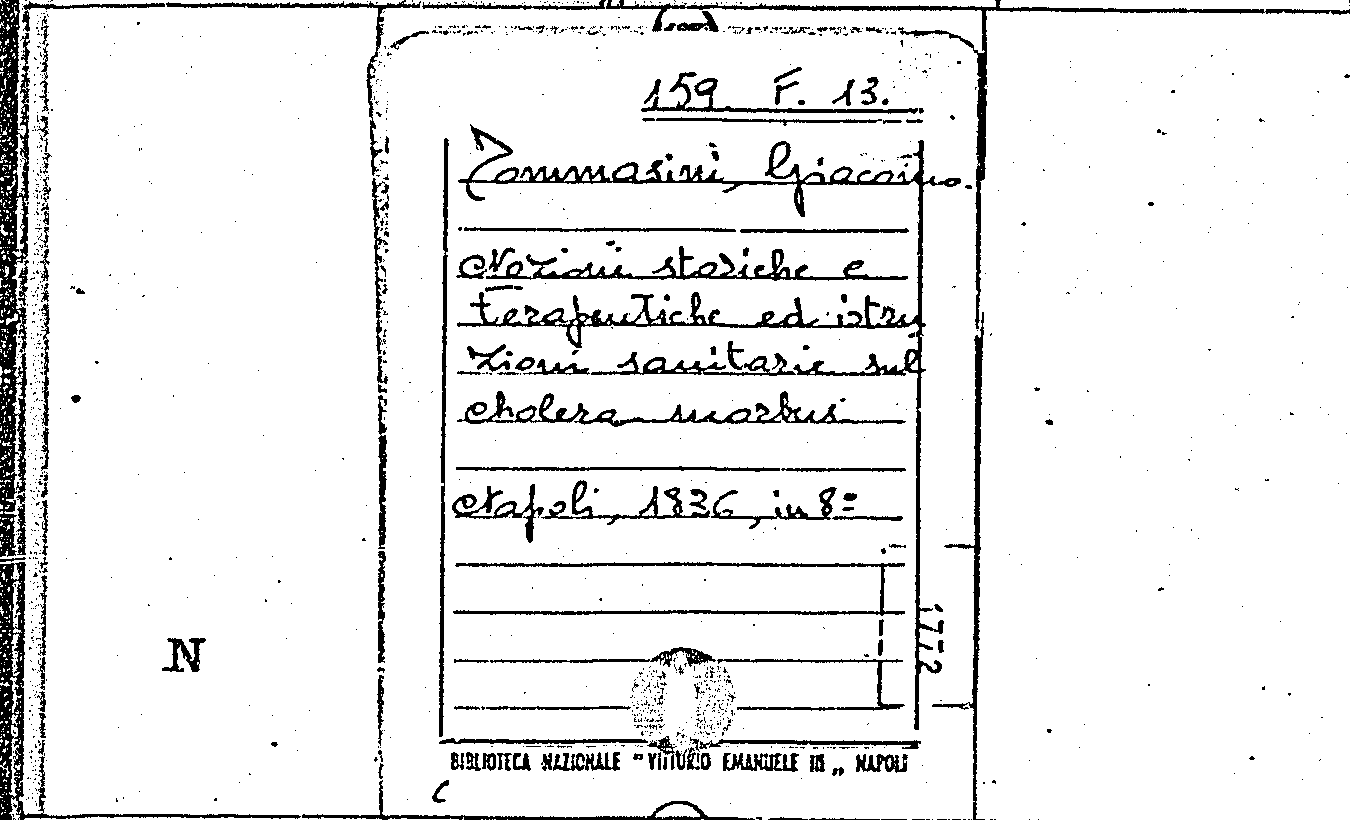 159 F. 13.
Tommasini, Giacomo.
Nozioni storiche e
terapeutiche ed istru
zioni sanitarie sul
cholera morbus
Napoli, 1836, in 8=
1772
N
BIBLIOTECA NAZIONALE "VITTORIO EMANUELE III„ NAPOLI
C